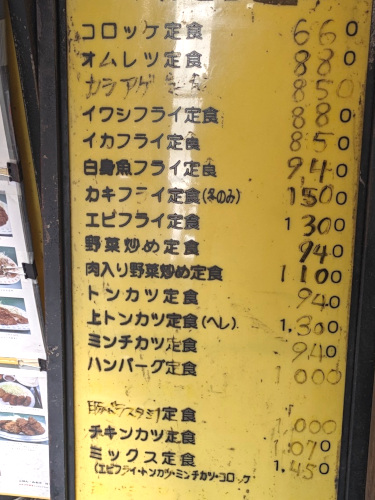 コロッケ定食 660
オムレツ定食 880
カラアゲ定食 850
イワシフライ定食 880
イカフライ定食 850
白身魚フライ定食 940
カキフライ定食(冬のみ) 1150
エビフライ定食 1300
野菜炒め定食 940
肉入り野菜炒め定食 1100
トンカツ定食 940
上トンカツ定食(ヘレ) 1,300
ミンチカツ定食 940
ハンバーグ定食 1000
定食 1,000
チキンカツ定食 1,070
ミックス定食 1,450
(エビフライ・トンカツ・ミンチカツ・コロッケ